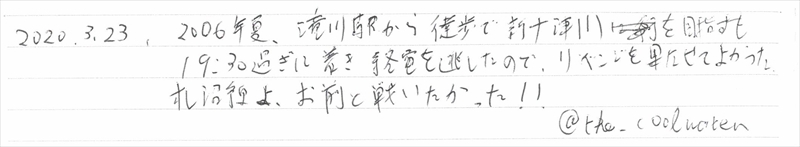 2020.3.23, 2006年夏、滝川駅から徒歩で新十津川を目指すも
19:30過ぎに着き終電を逃したので、リベンジを果たせてよかった。
札沼線よ、お前と戦いたかった!!
@the_coolwaten